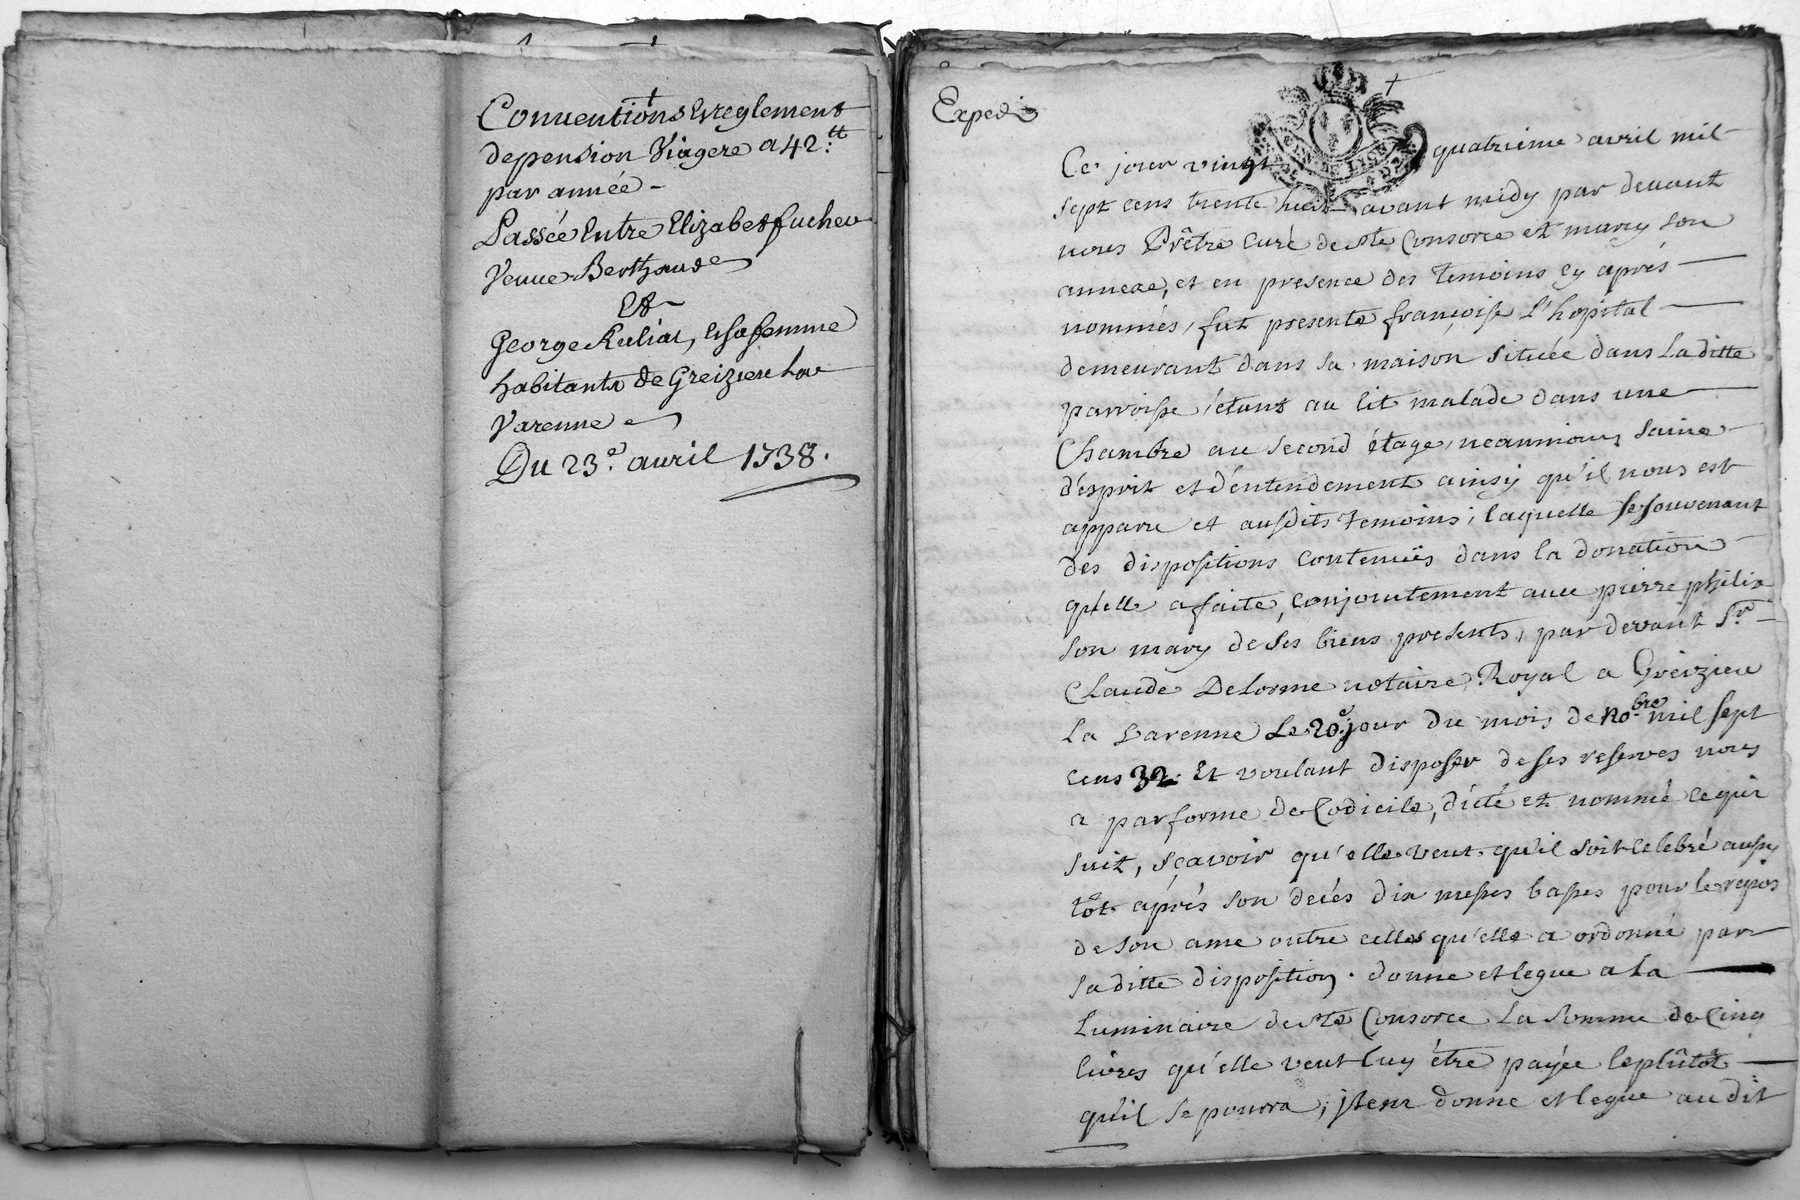 Conventions et reglement
de pension Viagere a 42.tt
par année -
Passée Entre Elizabet
Veuve Berthaud
Et
George Ruliat, et sa femme
habitants de Greizieu La
Varenne
Du 23.e avril 1738.
Exped.
Ce jour vingt quatrieme avril mil
sept cens trente huit avant midy par devant
nous Prêtre Curé de Ste Consorce et marcy son
annexe, et en presence des temoins cy aprés
nommés, fut presente françoise l'hopital
demeurant dans sa maison située dans La ditte
parroisse, étant au lit malade dans une
Chambre au second étage, neanmoins saine
d'esprit et d'entendement ainsy qu'il nous est
apparu et ausdits temoins; laquelle se souvenant
des dispositions contenües dans la donation
qu'elle a faite, conjointement avec pierre philis
son mary de ses biens presents, par devant Sr
Claude Delorme notaire Royal a Greizieu
La Varenne Le 20.e jour du mois de No.bre mil sept
cens 32. Et voulant disposer de ses reserves nous
a par forme de Codicile, dicté et nommé ce qui
suit, sçavoir qu'elle veut qu'il soit celebré aussy
tôt aprés son decés dix messes basses pour le repos
de son ame outre celles qu'elle a ordonné par
sa ditte disposition. donne et legue a La
Luminaire de Ste Consorce La somme de Cinq
livres qu'elle veut luy être payée le plûtôt
qu'il se pourra; jtem donne et legue au dit